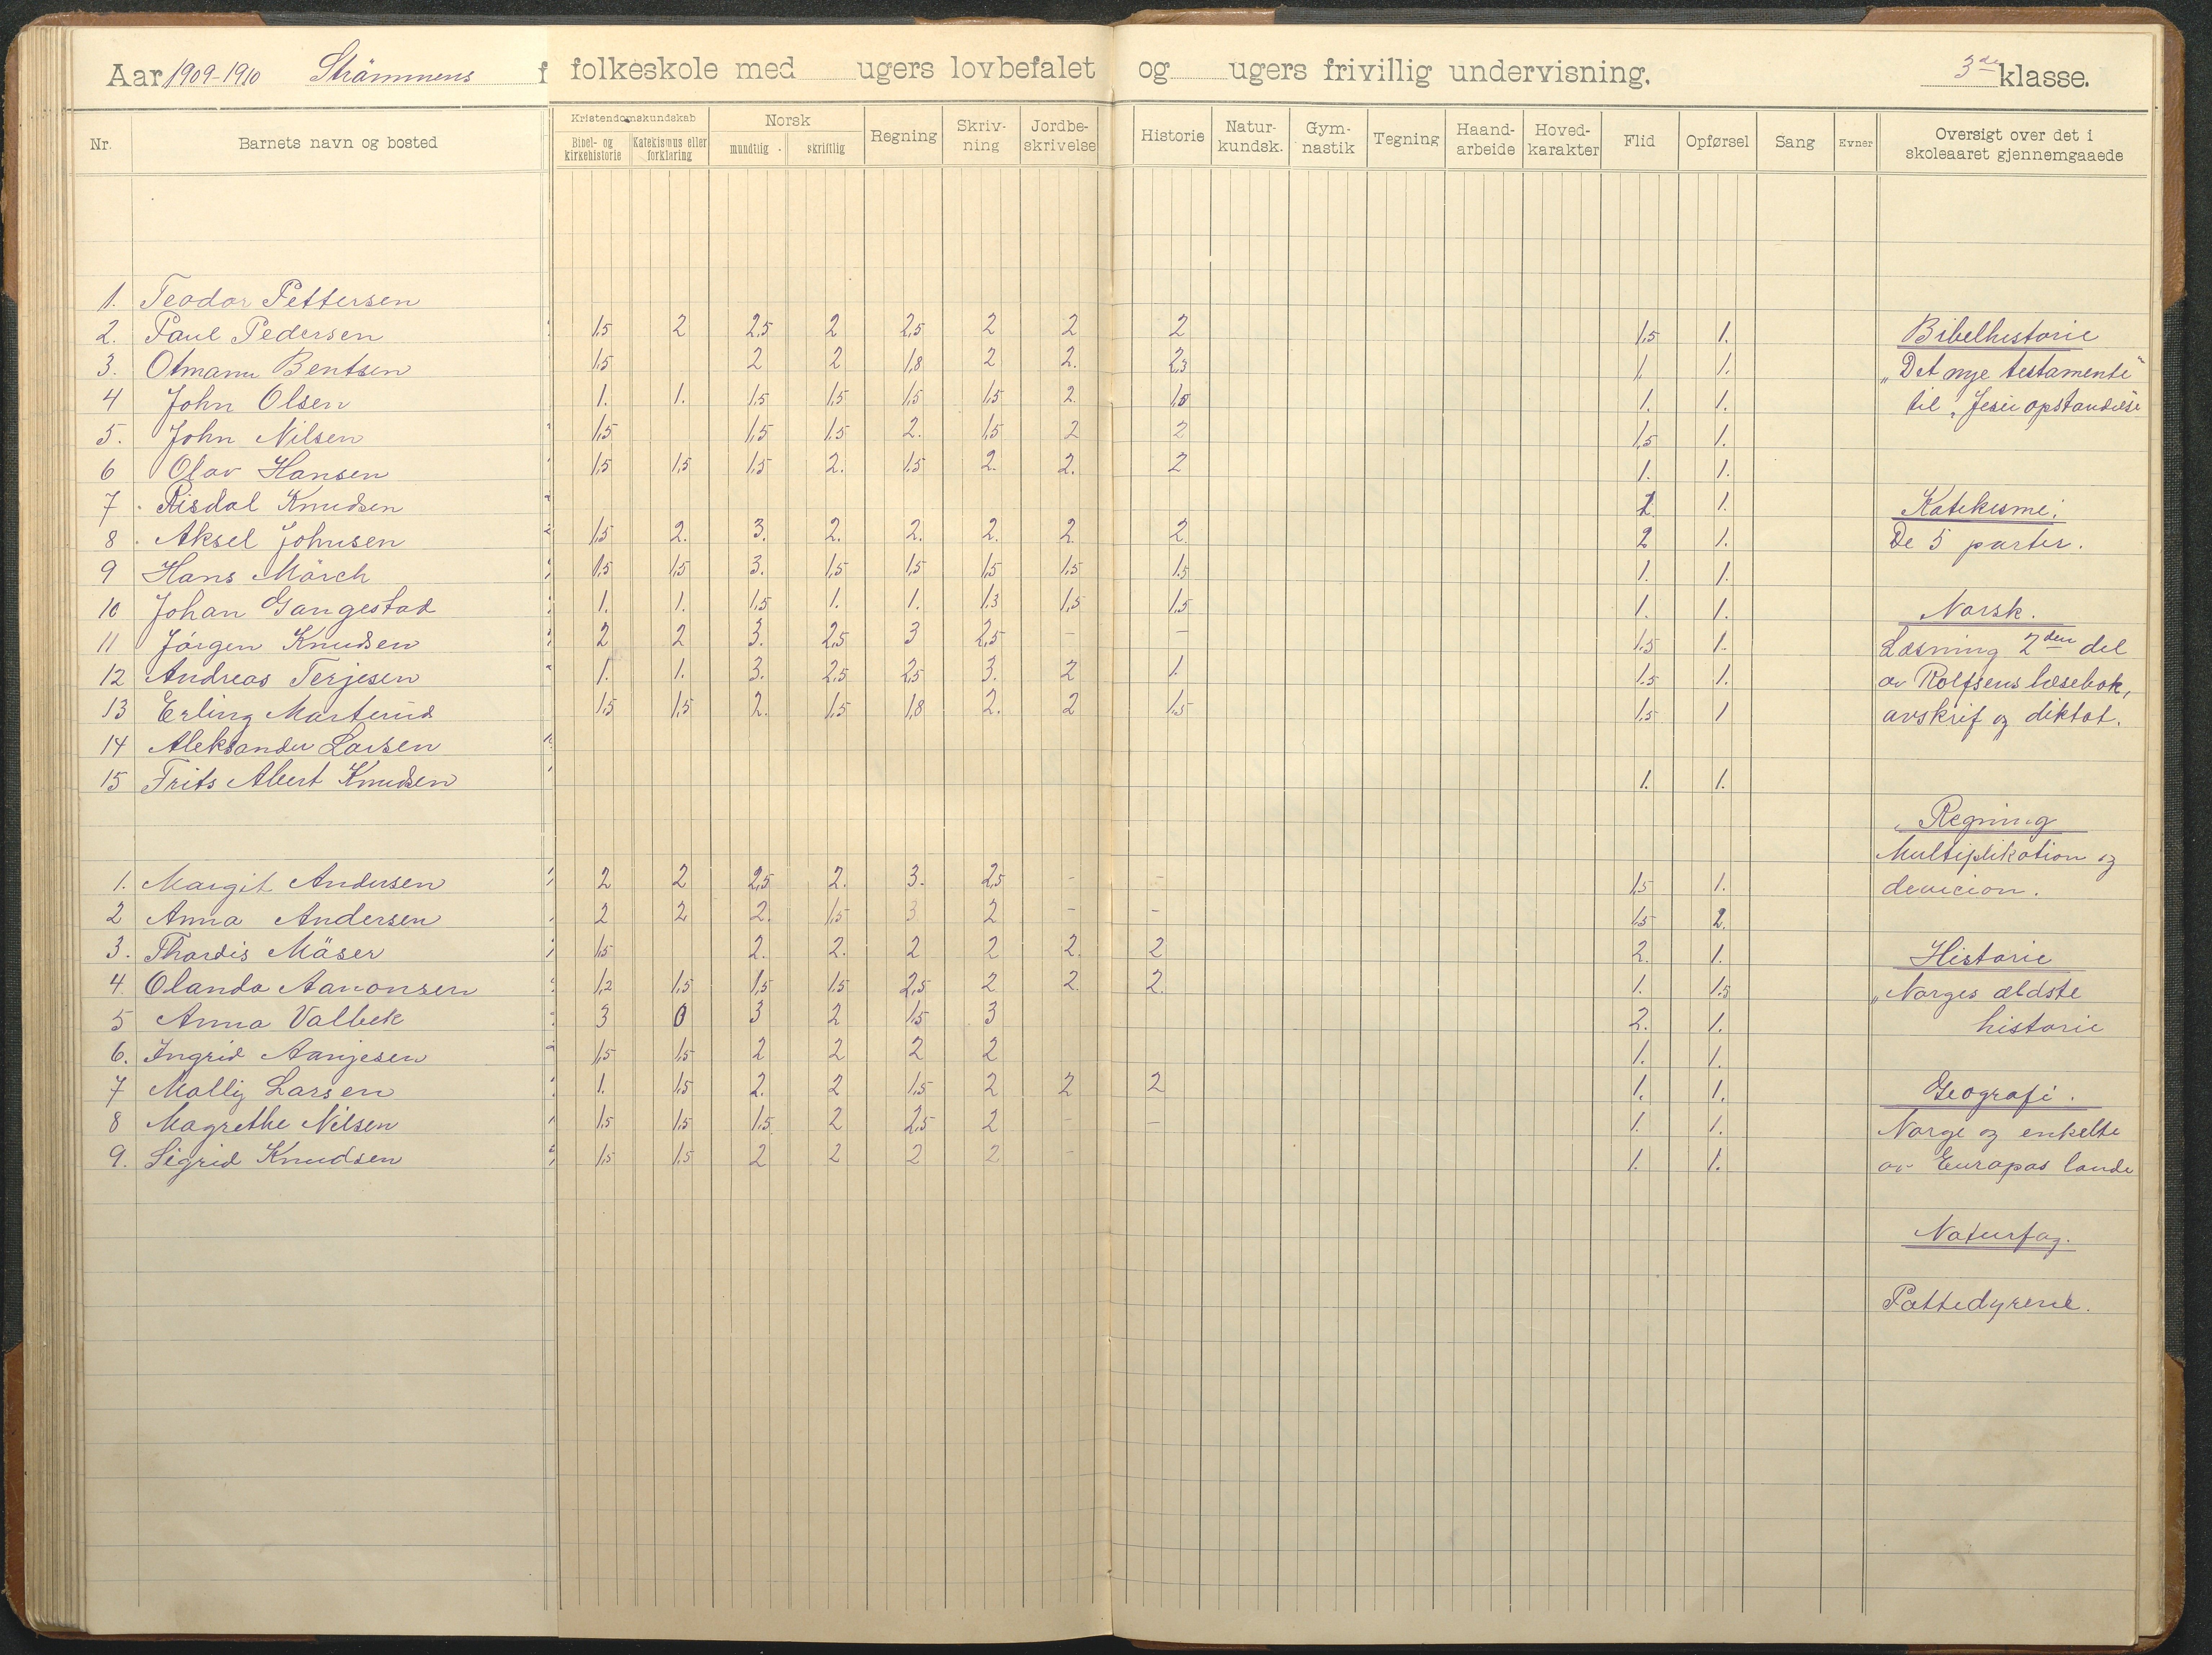 Aar 1909-1910 Strömmens folkeskole med ugers lovbefalet og ugers frivillig undervisning. 3de klasse.
Nr. Barnets navn og bosted Kristendomskundskab Bibel- og kirkehistorie Katekismus eller forklaring Norsk mundtlig skriftlig Regning Skriv-ning Jordbe-skrivelse Historie Natur-kundsk. Gym-nastik Tegning Haand-arbeide Hoved-karakter Flid Opførsel Sang Evner Oversigt over det i skoleaaret gjennemgaaede
1. Teodor Pettersen
2. Paul Pedersen 1,5 2 2,5 2 2,5 2 2 2 1,5 1. Bibelhistorie
3. Otmann Bentsen 1,5 2 2 1,8 2 2. 2,3 1. 1. „Det nye testamente"
4 John Olsen 1. 1. 1,5 1,5 1,5 1,5 2. 1,5 1. 1. til „Jesu opstandelse
5. John Nilsen 1,5 1,5 1,5 2. 1,5 2 2 1,5 1.
6 Olav Hansen 1,5 1,5 1,5 2. 1,5 2. 2. 2 1. 1.
7 Risdal Knudsen 2. 1. Katekisme:
8 Aksel Johnsen 1,5 2. 3. 2. 2. 2. 2. 2. 2 1. De 5 parter.
9 Hans Mörch 1,5 1,5 3. 1,5 1,5 1,5 1,5 1,5 1. 1.
10 Johan Gangestad 1. 1. 1,5 1. 1. 1,3 1,5 1,5 1. 1. Norsk.
11 Jörgen Knudsen 2 2 3. 2,5 3 2,5 - - 1,5 1. Læsning 2den del
12 Andreas Terjesen 1. 1. 3. 2,5 2,5 3. 2 1. 1,5 1. av Rolfsens læsebok,
13 Erling Marterud 1,5 1,5 2. 1,5 1,8 2. 2 1,5 1,5 1 avskrif og diktat.
14 Aleksander Larsen
15 Frits Albert Knudsen 1. 1.
Regning
Multiplikation og
1. Margit Andersen 2 2 2,5 2. 3. 2,5 - - 1,5 1. devicion.
2 Anna Andersen 2 2 2. 1,5 3 2 - - 1,5 2.
3. Thordis Mäser 1,5 2. 2. 2 2 2. 2 2. 1. Historie
4. Olanda Aanonsen 1,2 1,5 1,5 1,5 2,5 2 2. 2. 1. 1,5 „Norges ældste
5 Anna Valbek 3 0 3 2 1,5 3 2. 1. historie
6. Ingrid Aanjesen 1,5 1,5 2 2 2 2 1. 1.
7 Molly Larsen 1. 1,5 2. 2 1,5 2 2 2 1. 1. Geografi.
8 Magrethe Nilsen 1,5 1,5 1,5 2 2,5 2 - - 1. 1. Norge og enkelte
9. Sigrid Knudsen 1,5 1,5 2 2 2 2 - 1. 1. av Europas lande
Naturfag.
Pattedyrene.